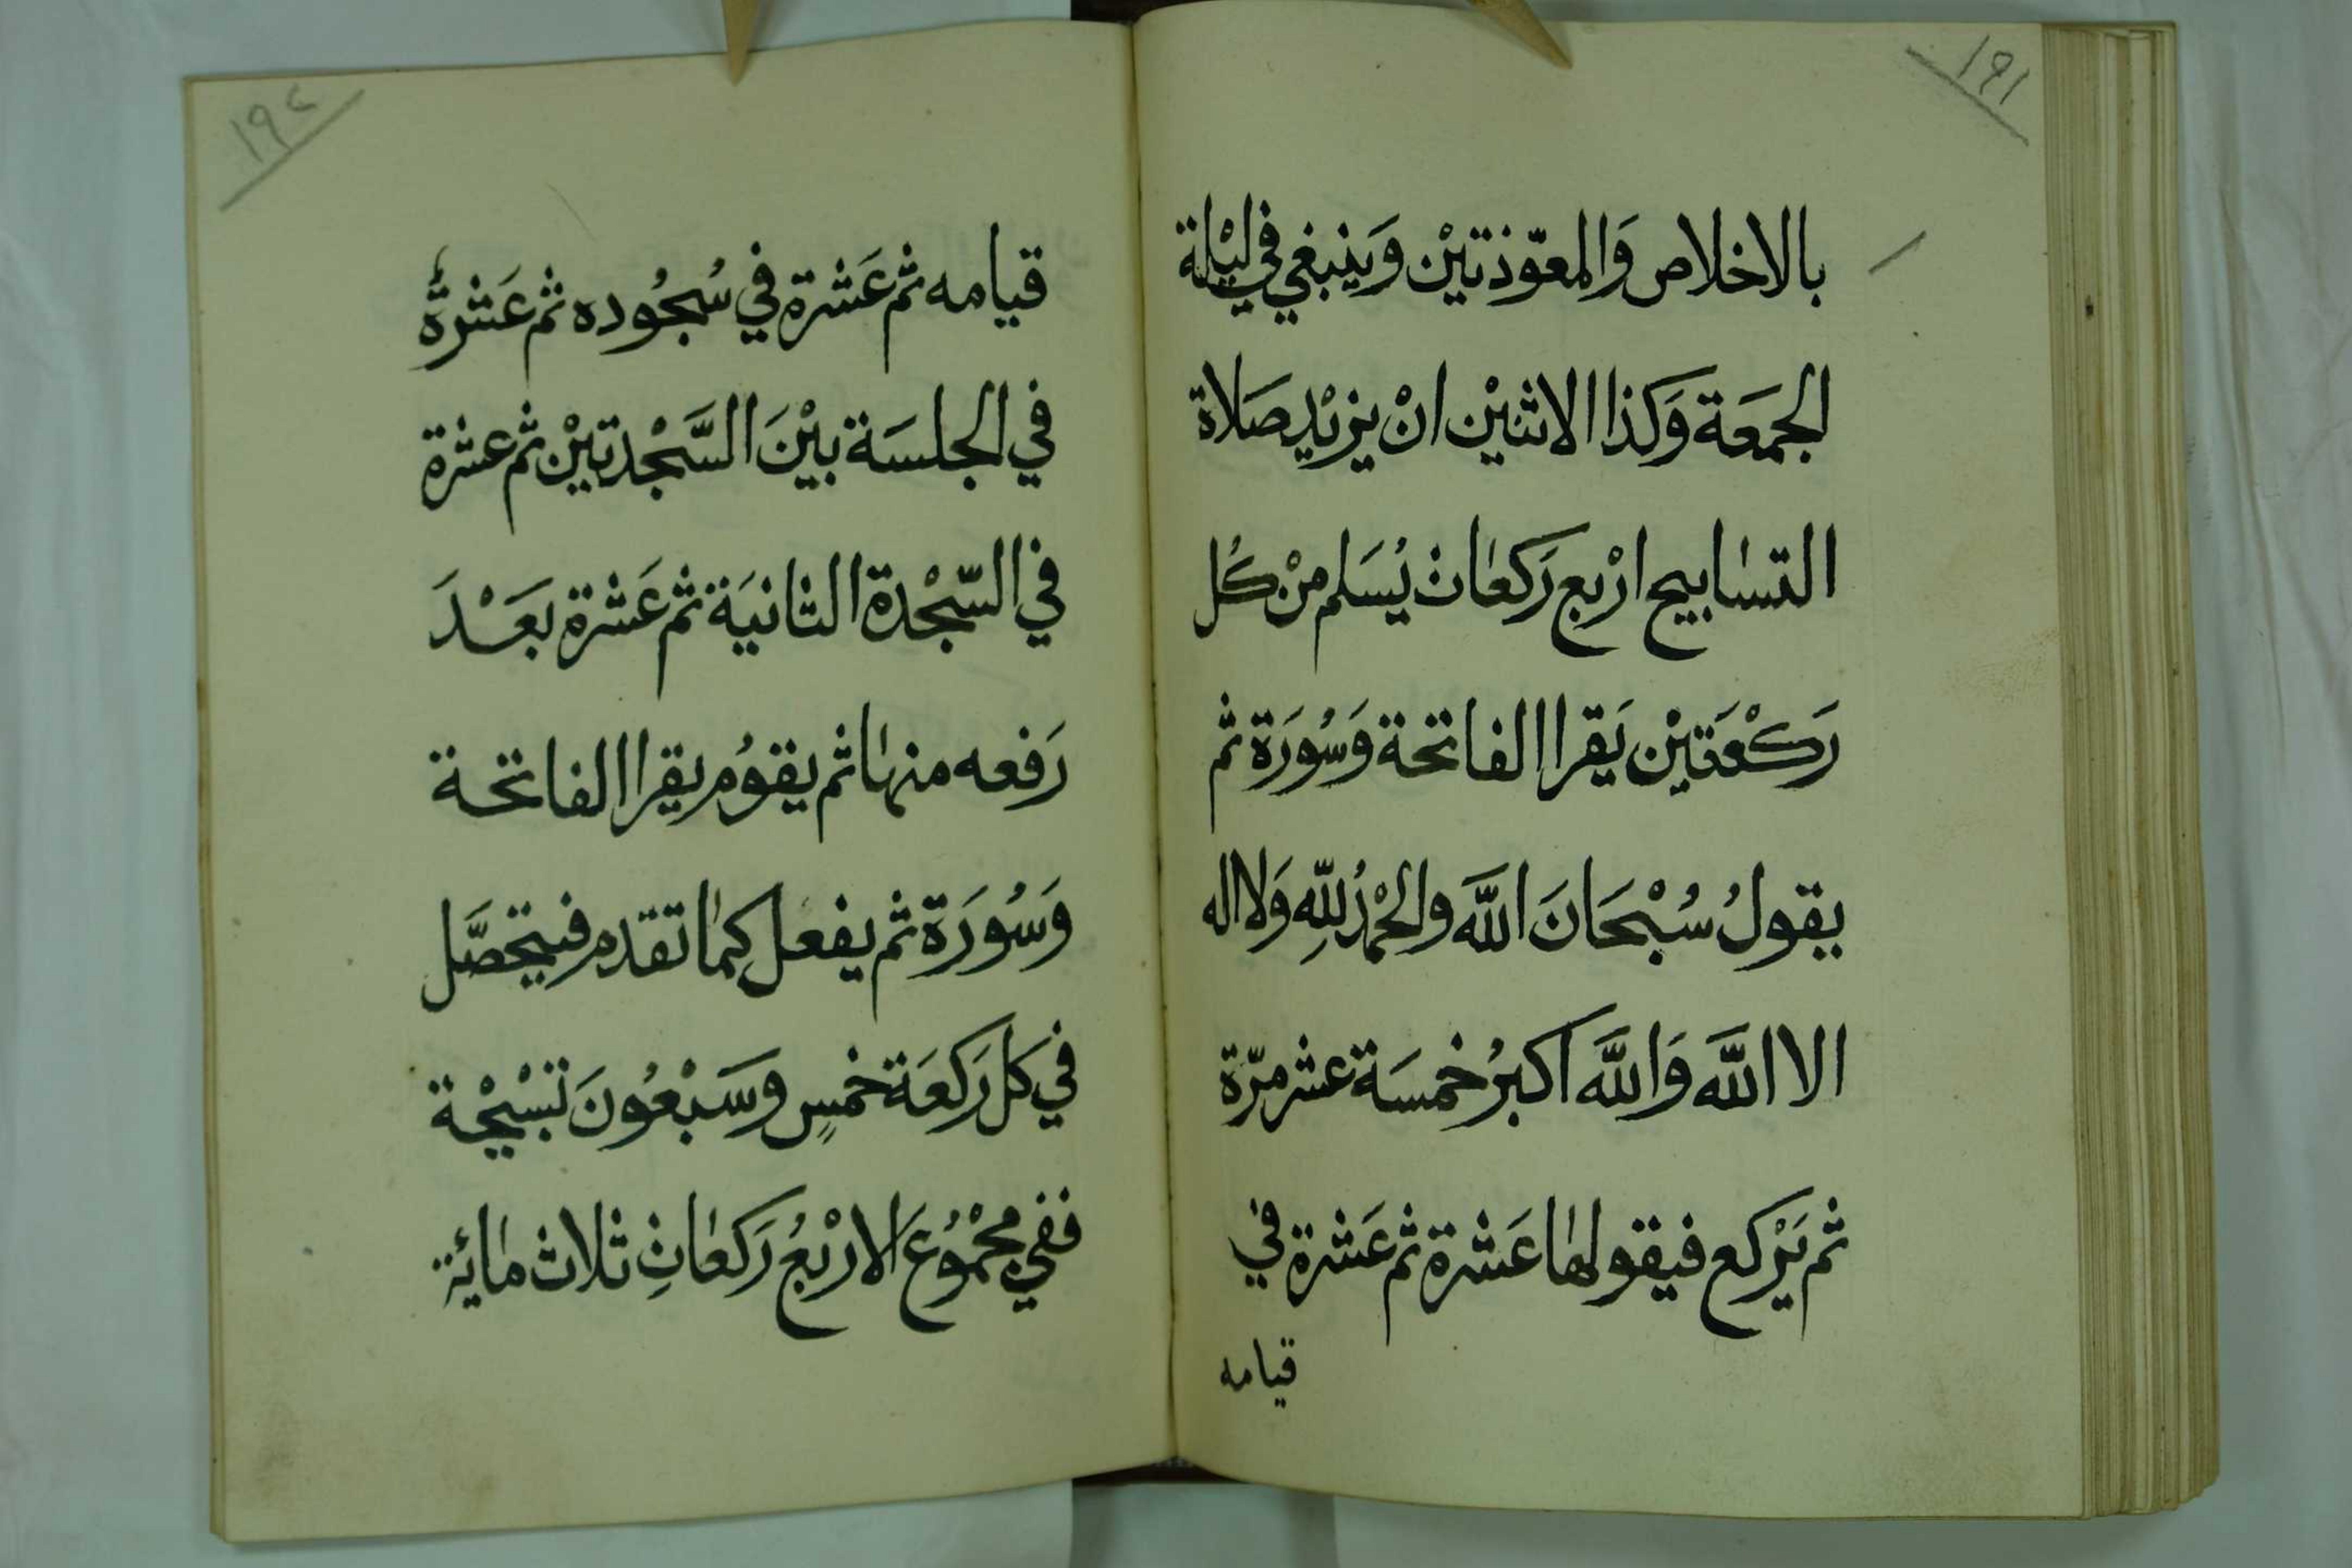 ١٩١
بالاخلاص وَالمعوّذتيْن وَينبغي في ليْلة
الجمعَة وَكذا الاثنيْن انْ يزيْد صَلاة
التسابيح ارْبع رَكعات يُسَلم منْ كُل
رَكْعَتيْن يَقرا الفاتحة وَسُورَة ثم
يقولُ سُبْحَانَ اللَّه والحْمدُ للّهِ وَلا اله
الا اللَّه وَاللَّه اَكبرُ خمسَة عشر مرّة
ثم يَرْكع فيقولها عَشرة ثم عَشرة في
قيامه
١٩٢
قيامه ثم عَشرة في سُجُوده ثم عَشرةٌ
في الجلسَة بيْنَ السَّجْدتيْن ثم عشرة
في السّجْدة الثانيَة ثم عَشرة بعَـْدَ
رَفعه منها ثم يقوُم يقرا الفاتحـة
وَسُورَة ثم يفعل كما تقدم فيتحصَّل
في كل رَكعَة خمسٍ وسَبْعُونَ تسْبيْحة
ففي مجْمُوُعَ الارْبعُ رَكعاتِ ثلاث مائة